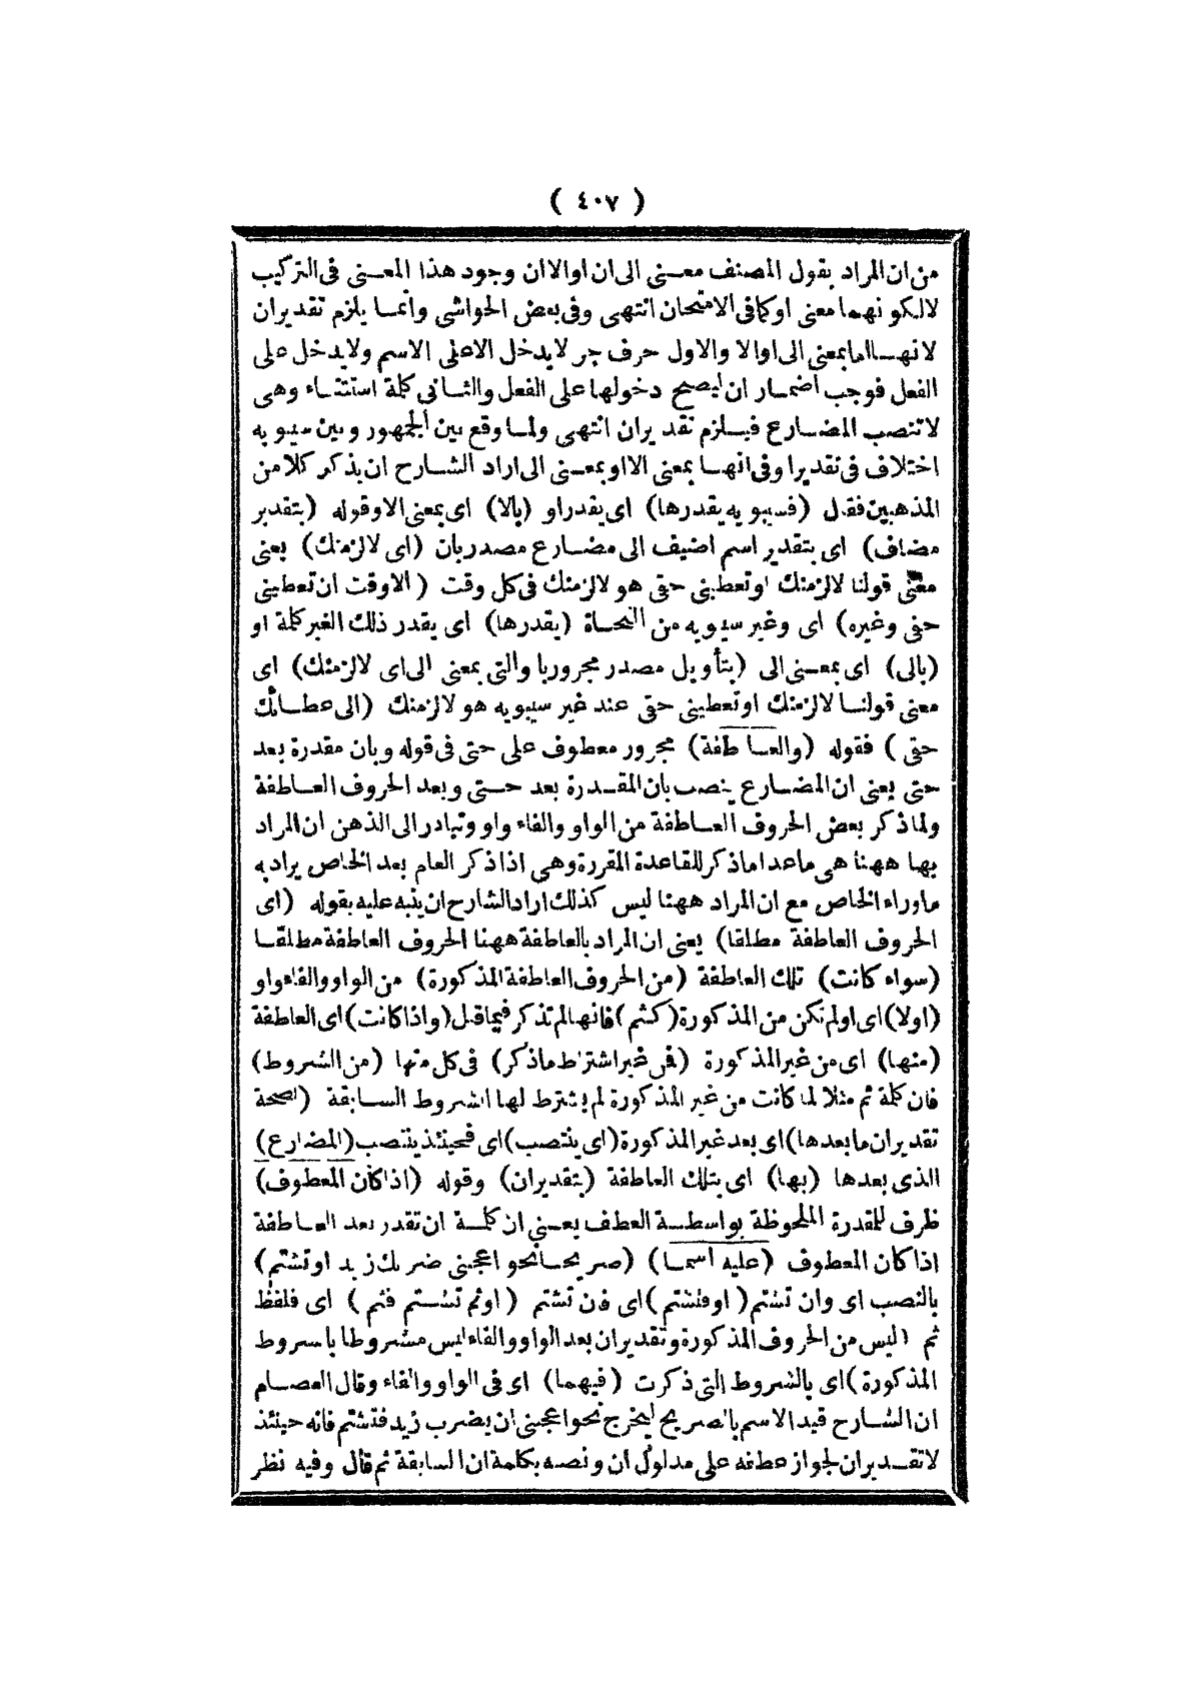 ( ٤٠٧ )
من ان المراد بقول المصنف معنى الى ان اوالا ان وجود هذا المعنى فى التركيب
لالكو نهما معنى او كما فى الامتحان انتهى وفى بعض الحواشى وانما يلزم تقديران
لانها اما بمعنى الى اوالا والاول حرف جر لايدخل الاعلى الاسم ولايدخل على
الفعل فوجب اضمار ان ليصح دخولها على الفعل والثانى كلمة استثناء وهى
لاتنصب المضارع فيلزم تقديران انتهى ولما وقع بين الجمهور وبين سيبويه
اختلاف فى تقديرا وفى انها بمعنى الا او بمعنى الى اراد الشارح ان يذكر كلامن
المذهبين فقال (فسيبويه يقدرها) اى يقدراو (بالا) اى بمعنى الا وقوله (بتقدير
مضاف) اى بتقدير اسم اضيف الى مضارع مصدر بان (اى لالزمنك) يعنى
معنى قولنا لالزمنك اوتعطينى حقى هو لالزمنك فى كل وقت (الاوقت ان تعطينى
حقى وغيره) اى وغير سيبويه من النحاة (يقدرها) اى يقدر ذلك الغير كلمة او
(بالى) اى بمعنى الى (بتأويل مصدر مجرور با والتى بمعنى الى اى لالزمنك) اى
معنى قولنا لالزمنك اوتعطينى حقى عند غير سيبويه هو لالزمنك (الى عطائك
حقى) فقوله (والعاطفة) مجرور معطوف على حتى فى قوله وبان مقدرة بعد
حتى يعنى ان المضارع ينصب بان المقدرة بعد حتى وبعد الحروف العاطفة
ولما ذكر بعض الحروف العاطفة من الواو والفاء واو وتبادر الى الذهن ان المراد
بها ههنا هى ماعدا ماذكر للقاعدة المقررة وهى اذا ذكر العام بعد الخاص يراد به
ماوراء الخاص مع ان المراد ههنا ليس كذلك اراد الشارح ان ينبه عليه بقوله (اى
الحروف العاطفة مطلقا) يعنى ان المراد بالعاطفة ههنا الحروف العاطفة مطلقا
(سواء كانت) تلك العاطفة (من الحروف العاطفة المذكورة) من الواو والفاء واو
(اولا) اى اولم تكن من المذكورة (كثم) فانها لم تذكر فيما قبل (واذا كانت) اى العاطفة
(منها) اى من غير المذكورة (فى غير اشتراط ماذكر) فى كل منها (من الشروط)
فان كلمة ثم مثلا لما كانت من غير المذكورة لم يشترط لها الشروط السابقة (لصحة
تقديران مابعدها) اى بعد غير المذكورة (اى ينتصب) اى فحينئذ ينتصب (المضارع)
الذى بعدها (بها) اى بتلك العاطفة (بتقديران) وقوله (اذا كان المعطوف)
ظرف للمقدرة الملحوظة بواسطة العطف يعنى ان كلمة ان تقدر بعد العاطفة
اذا كان المعطوف (عليه اسما) (صريحا نحو اعجبنى ضربك زيد اوتشتم)
بالنصب اى وان تشتم (اوفتشتم) اى فان تشتم (اوثم تشتم فثم) اى فلفظ
ثم (ليس من الحروف المذكورة وتقديران بعد الواو والفاء ليس مشروطا بالشروط
المذكورة) اى بالشروط التى ذكرت (فيهما) اى فى الواو والفاء وقال العصام
ان الشارح قيد الاسم بالصريح ليخرج نحو اعجبنى ان يضرب زيد فتشتم فانه حينئذ
لاتقديران لجواز عطفه على مدلول ان ونصبه بكلمة ان السابقة ثم قال وفيه نظر